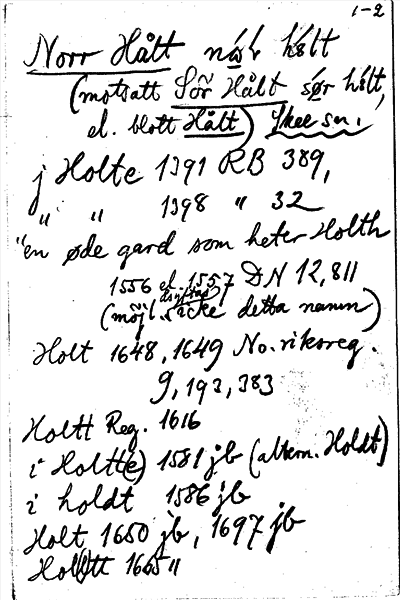 1-2
Norr Hålt nór hålt
(motsatt Sör Hålt sør hålt,
el. blott Hålt) Skee sn.
j Holte 1391 RB 389,
" " 1398 " 32
"en øde gard som heter Holth
1556 el. 1557 DN 12,811
(möjl. åsyftas icke detta namn)
Holt 1648, 1649 No. riksreg.
9, 193, 383
Holtt Reg. 1616
i Holtt(e) 1581 jb (altern. Holdt)
i holdt 1586 jb
Holt 1650 jb, 1697 jb
Holtt 1665 "